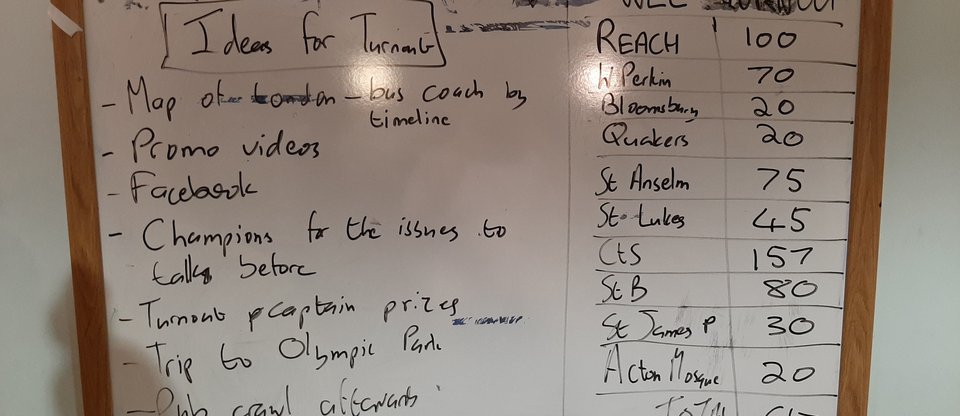 Ideas for Turnout
- Map of London - bus coach by
timeline
- Promo videos
- Facebook
- Champions for the issues to
talk before
- Turnout captain prizes
- Trip to Olympic Park
- Pub crawl afterwards
REACH 100
W Perkin 70
Bloomsbury 20
Quakers 20
St Anselm 75
St. Lukes 45
CtS 157
St B 80
St James P 30
Acton Mosque 20